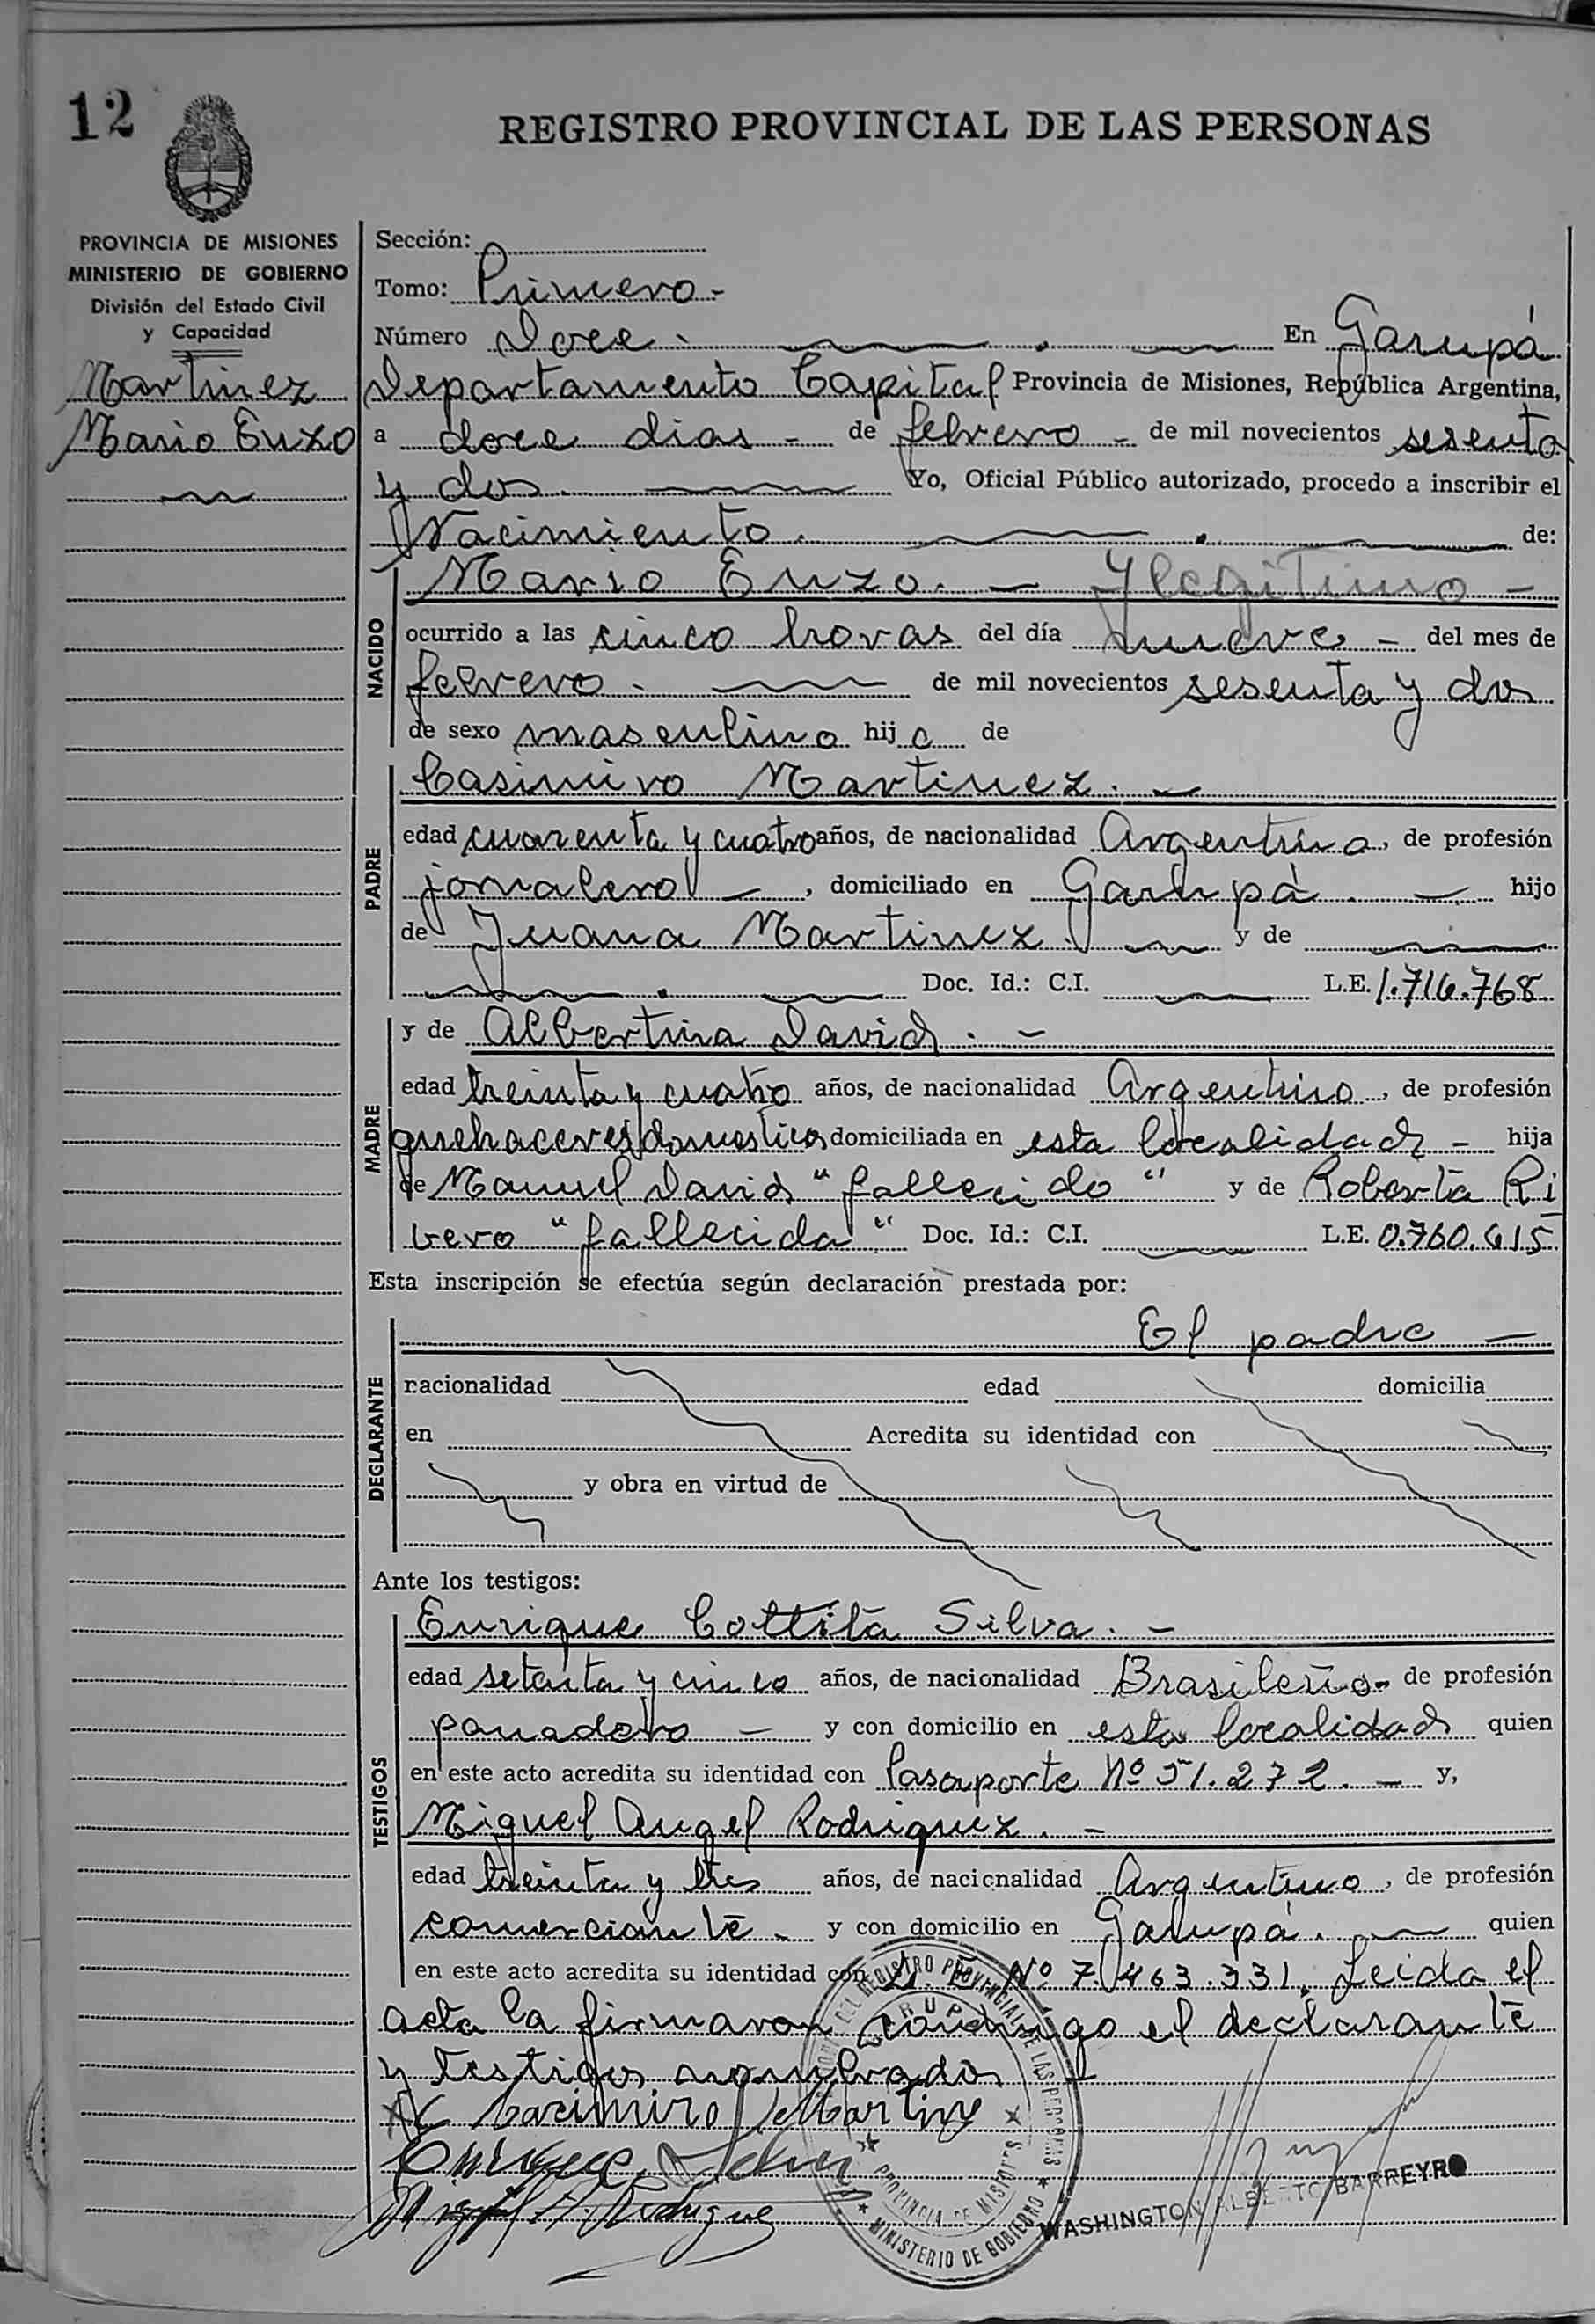 12
REGISTRO PROVINCIAL DE LAS PERSONAS
PROVINCIA DE MISIONES
MINISTERIO DE GOBIERNO
División del Estado Civil
y Capacidad
Martinez
Mario Enzo
Sección:
Tomo: Primero -
Número Doce. En Garupá
Departamento Capital Provincia de Misiones, República Argentina,
a doce dias - de febrero - de mil novecientos sesenta
y dos. Yo, Oficial Público autorizado, procedo a inscribir el
Nacimiento. de:
NACIDO
Mario Enzo. - Ylegitimo -
ocurrido a las cinco horas del día nueve - del mes de
febrero. de mil novecientos sesenta y dos
de sexo masculino hijo de
PADRE
Casimiro Martinez. -
edad cuarenta y cuatro años, de nacionalidad Argentina, de profesión
jornalero -, domiciliado en Garupá. - hijo
de Juana Martinez. y de
Doc. Id.: C.I. L.E. 1.716.768
MADRE
y de Albertina David. -
edad treinta y cuatro años, de nacionalidad Argentino, de profesión
quehaceres domesticos domiciliada en esta localidad - hija
de Manuel David "fallecido" y de Roberta Ri
vero "fallecida" Doc. Id.: C.I. L.E. 0.760.615
Esta inscripción se efectúa según declaración prestada por:
DECLARANTE
El padre -
nacionalidad edad domicilia
en Acredita su identidad con
y obra en virtud de
Ante los testigos:
TESTIGOS
Enrique Silva. -
edad setenta y cinco años, de nacionalidad Brasileño - de profesión
panadero - y con domicilio en esta localidad quien
en este acto acredita su identidad con Pasaporte Nº 51.272. - y,
Miguel Angel Rodriguez. -
edad treinta y tres años, de nacionalidad Argentino, de profesión
comerciante - y con domicilio en Garupá. - quien
en este acto acredita su identidad con L. E. Nº 7.463.331. Leida el
acta la firmaron conmigo el declarante
y testigos nombrados
Casimiro Martinez
Enrique Silva
Miguel A. Rodriguez
REGISTRO PROVINCIAL DE LAS PERSONAS
GARUPA
PROVINCIA DE MISIONES
MINISTERIO DE GOBIERNO
WASHINGTON ALBERTO BARREYRO